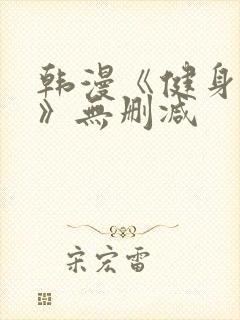 韩漫《健身
》無删减
宋宏雷